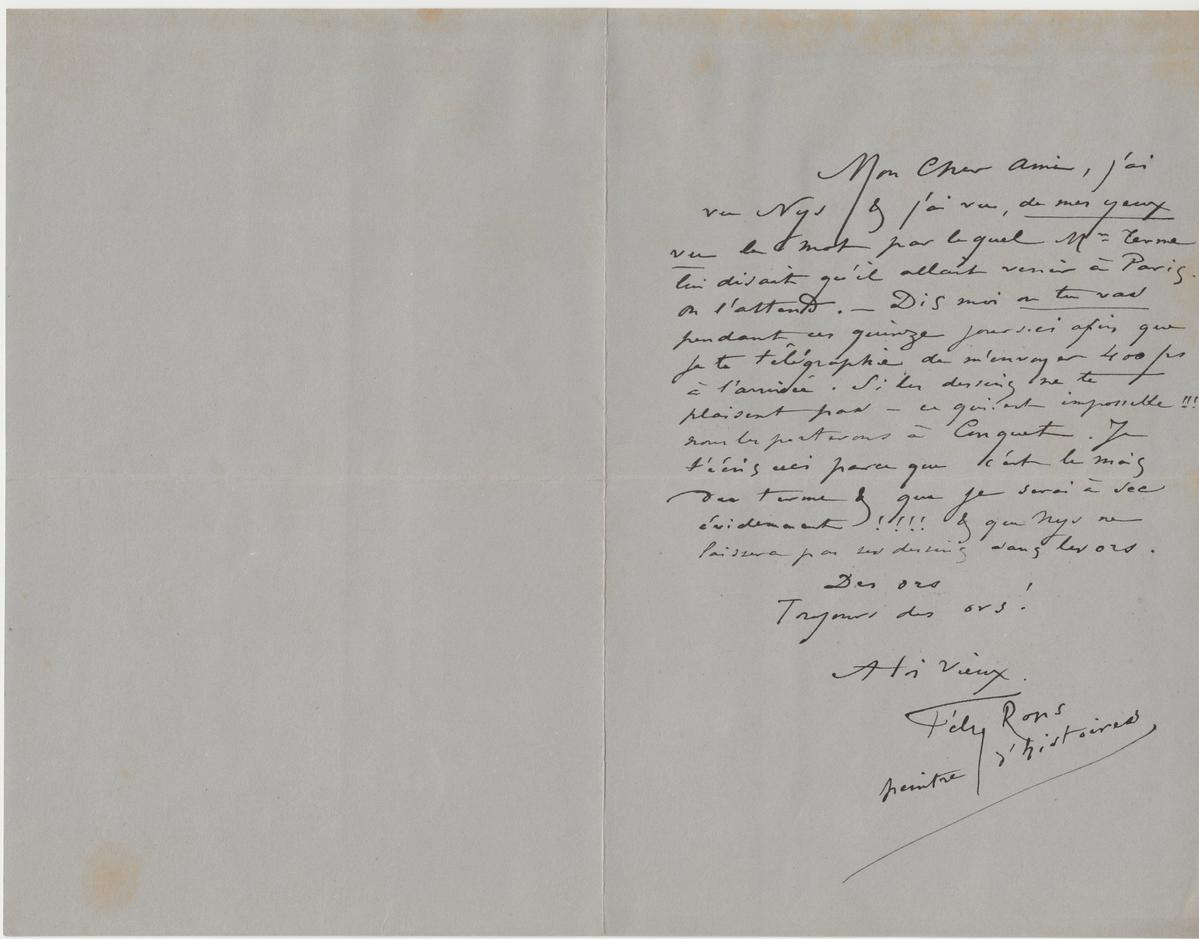 Mon Cher Ami, j'ai
vu Nys & j'ai vu, de mes yeux
vu le mot par lequel Mr Terme
lui disait qu'il allait venir à Paris.
on l'attend. — Dis moi où tu vas
pendant ces quinze jours ici afin que
je te télégraphie de m'envoyer 400 frs
à l'arrivée. Si les dessins ne te
plaisent pas — ce qui est impossible !!!
nous les porterons à Conquet. Je
t'écris ceci parce que c'est le mois
du terme & que je serai à sec
évidemment !!!! & que Nys ne
laissera pas ses dessins sans les ors.
Des ors
Toujours des ors !
A toi vieux.
Fély Rops
peintre d'histoires